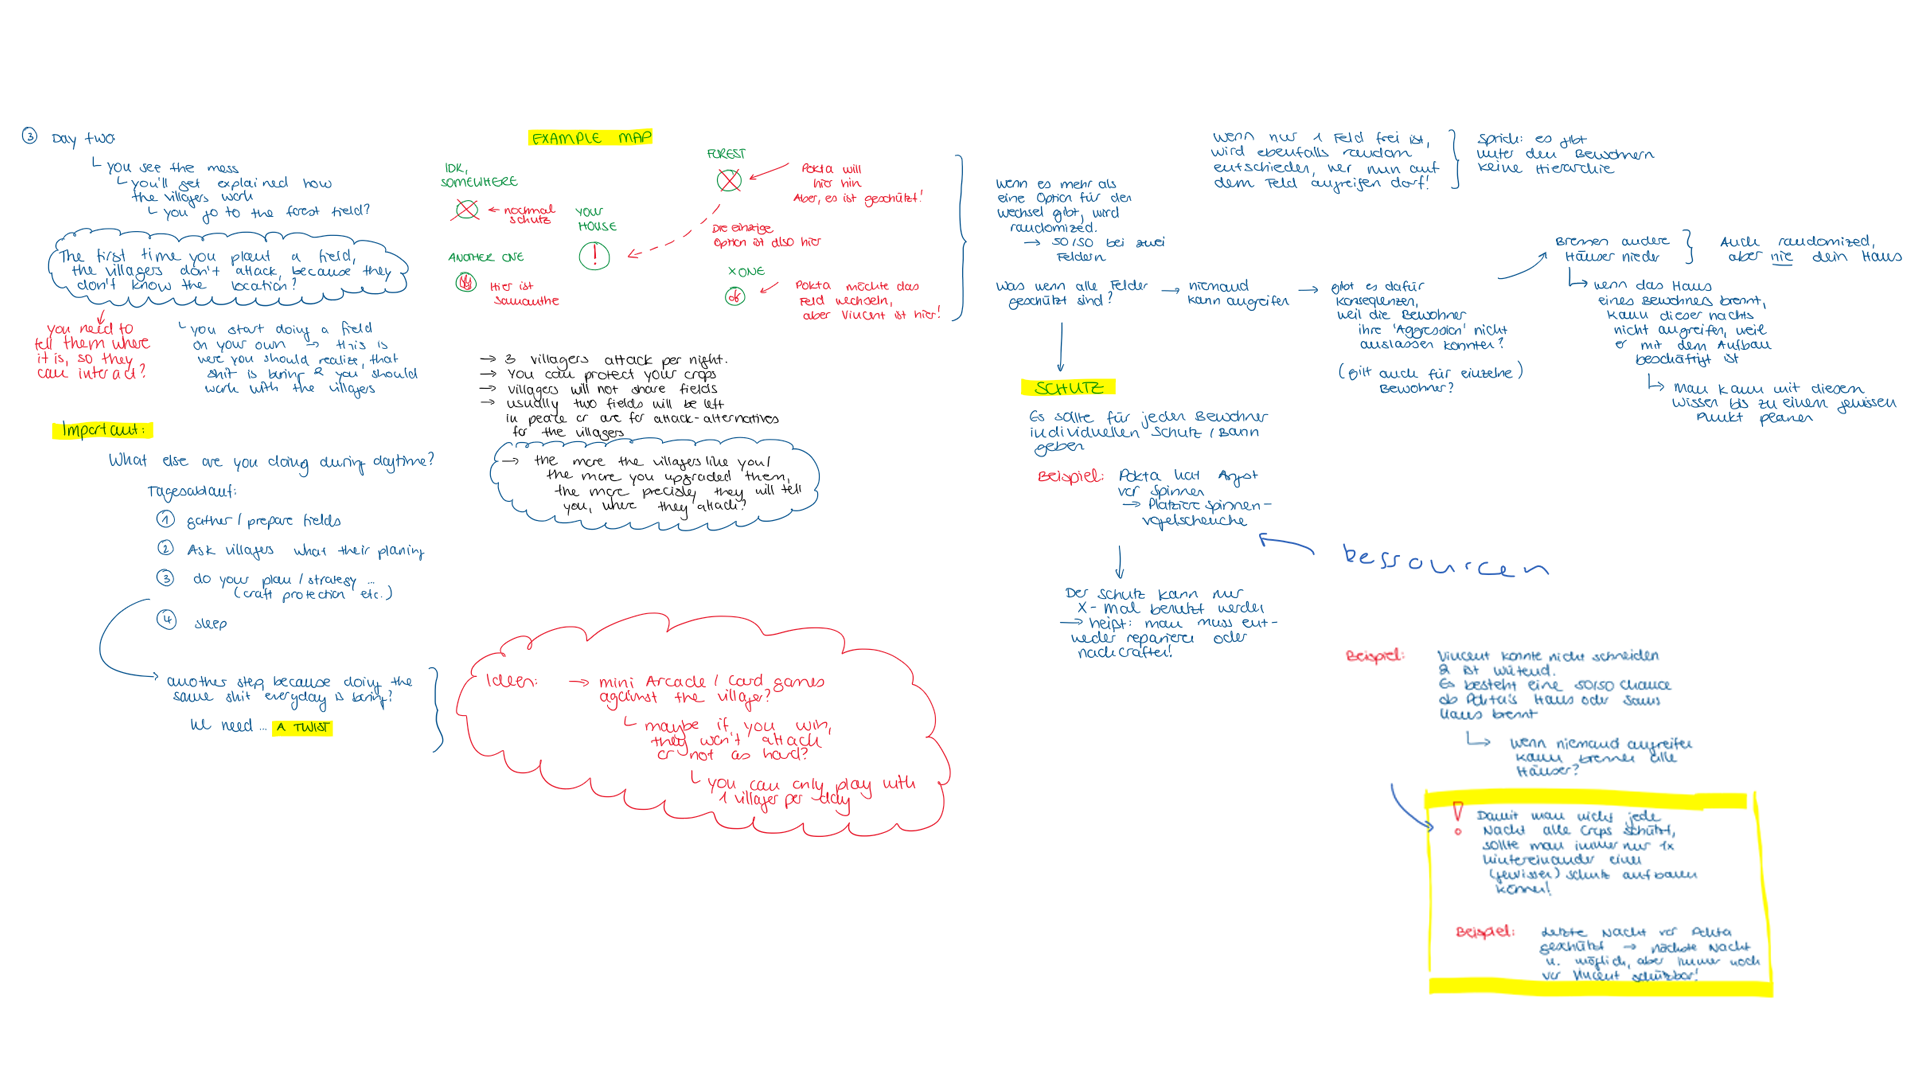 ③ Day two
you see the mess
you'll get explained how
the villagers work
you go to the forest field?
The first time you plant a field,
the villagers don't attack, because they
don't know the location?
you need to
tell them where
it is, so they
can interact?
you start doing a field
on your own → this is
were you should realize, that
shit is boring & you should
work with the villagers
Important:
What else are you doing during daytime?
Tagesablauf:
① gather / prepare fields
② Ask villagers what their planing
③ do your plan / strategy ...
(craft protection etc.)
④ sleep
another step, because doing the
same shit everyday is boring?
We need ... A TWIST
EXAMPLE MAP
IDK,
SOMEWHERE
← nochmal
schutz
YOUR
HOUSE
!
FOREST
Pokta will
hier hin
Aber, es ist geschützt!
Die einzige
Option ist also hier
ANOTHER ONE
Hier ist
Samantha
X ONE
Pokta möchte das
Feld wechseln,
aber Vincent ist hier!
→ 3 villagers attack per night.
→ You can protect your crops
→ villagers will not share fields
→ usually two fields will be left
in peace or are for attack-alternatives
for the villagers
→ the more the villagers like you/
the more you upgraded them,
the more precisley they will tell
you, where they attack?
Ideen: → mini Arcade / Card games
against the villager?
maybe if you win,
they won't attack
or not as hard?
you can only play with
1 villager per day
wenn es mehr als
eine Option für den
wechsel gibt, wird
randomized.
→ 50/50 bei zwei
Feldern
wenn nur 1 Feld frei ist,
wird ebenfalls random
entschieden, wer nun auf
dem Feld angreifen darf!
Sprich: es gibt
unter den Bewohnern
keine Hierarchie
Was wenn alle Felder
geschützt sind?
→ niemand
kann angreifen
→ gibt es dafür
konsequenzen,
weil die Bewohner
ihre 'Aggression' nicht
auslassen konnten?
(Gilt auch für einzelne)
Bewohner?
Brennen andere
Häuser nieder
Auch randomized,
aber nie dein Haus
wenn das Haus
eines Bewohners brennt,
kann dieser nachts
nicht angreifen, weil
er mit dem Aufbau
beschäftigt ist
man kann mit diesem
wissen bis zu einem gewissen
Punkt planen
SCHUTZ
Es sollte für jeden Bewohner
individuellen Schutz / Bann
geben
Beispiel: Pokta hat Angst
vor Spinnen
→ Platziere Spinnen-
vogelscheuche
Ressourcen
Der Schutz kann nur
X-mal benutzt werden
→ heißt: man muss ent-
weder reparieren oder
nachcraften!
Beispiel: Vincent konnte nicht schneiden
& ist wütend.
Es besteht eine 50/50 Chance
ob Pokta's Haus oder Sams
Haus brennt
wenn niemand angreifen
kann brennen alle
Häuser?
! Damit man nicht jede
Nacht alle Crops schützt,
sollte man immer nur 1x
hintereinander einen
(gewissen) schutz aufbauen
können!
Beispiel: Letzte Nacht vor Pokta
geschützt → nächste Nacht
n. möglich, aber immer noch
vor Vincent schützbar!